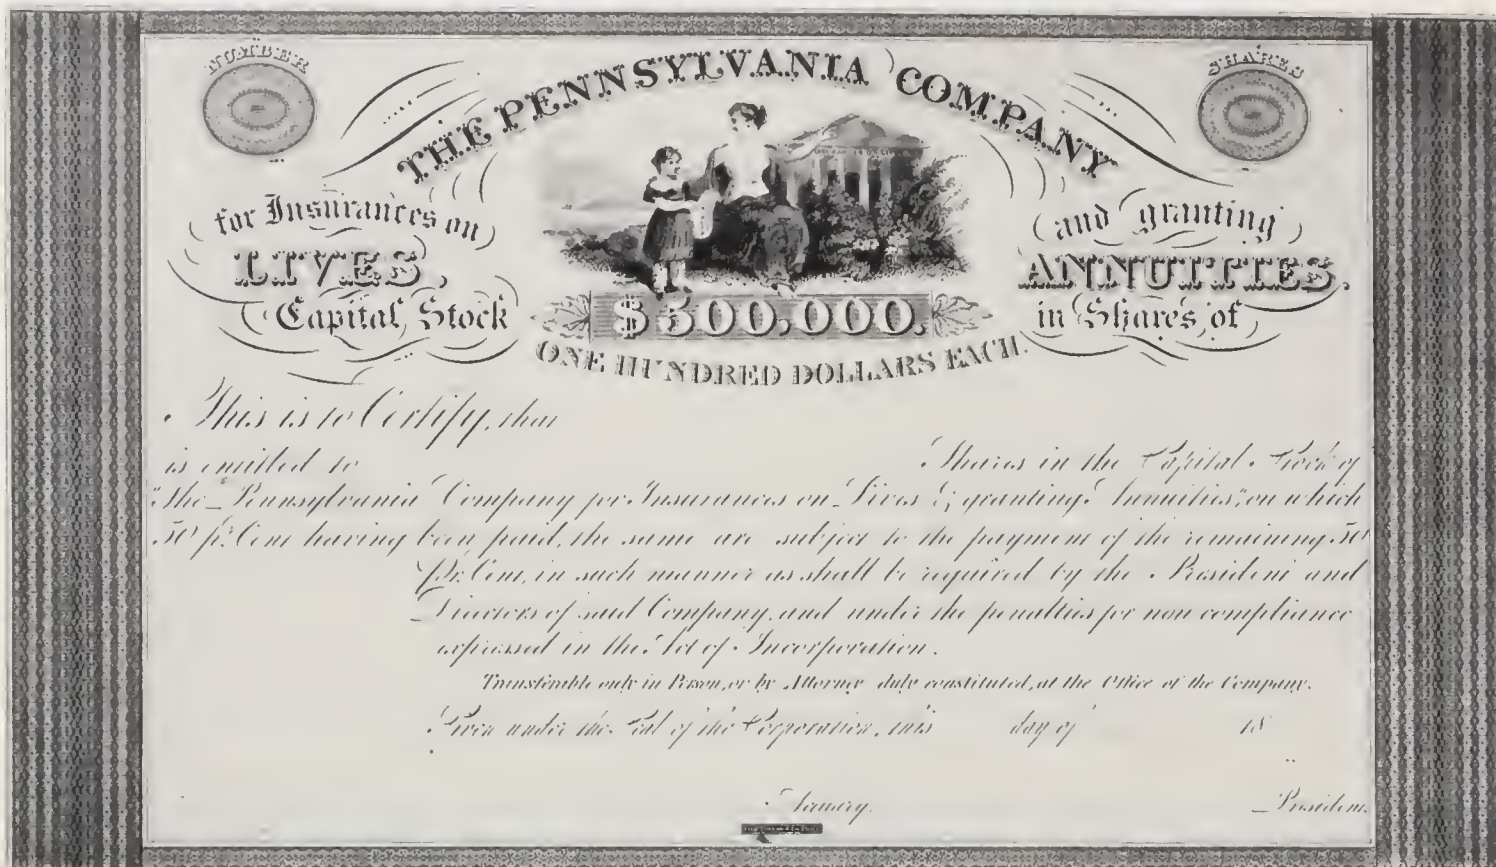 NUMBER
SHARES
THE PENNSYLVANIA COMPANY
for Insurances on
LIVES,
Capital Stock
and granting
ANNUITIES.
in Shares of
$500,000,
ONE HUNDRED DOLLARS EACH.
This is to Certify, that
is entitled to Shares in the Capital Stock of
"The Pennsylvania Company for Insurances on Lives & granting Annuities," on which
50 pr. Cent having been paid, the same are subject to the payment of the remaining 50
Pr. Cent, in such manner as shall be required by the President and
Directors of said Company, and under the penalties for non compliance
expressed in the Act of Incorporation.
Transferable only in Person, or by Attorney duly constituted, at the Office of the Company.
Given under the Seal of the Corporation, this day of 18
President.